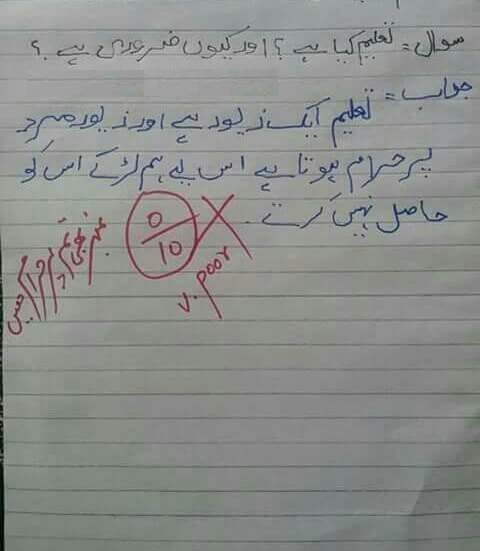 سوال = تعلیم کیا ہے ؟ اور کیوں ضروری ہے ؟
جواب = تعلیم ایک زیور ہے اور زیور مرد
پر حرام ہوتا ہے اس لیے ہم لڑکے اس کو
حاصل نہیں کرتے.
0
10
v. poor